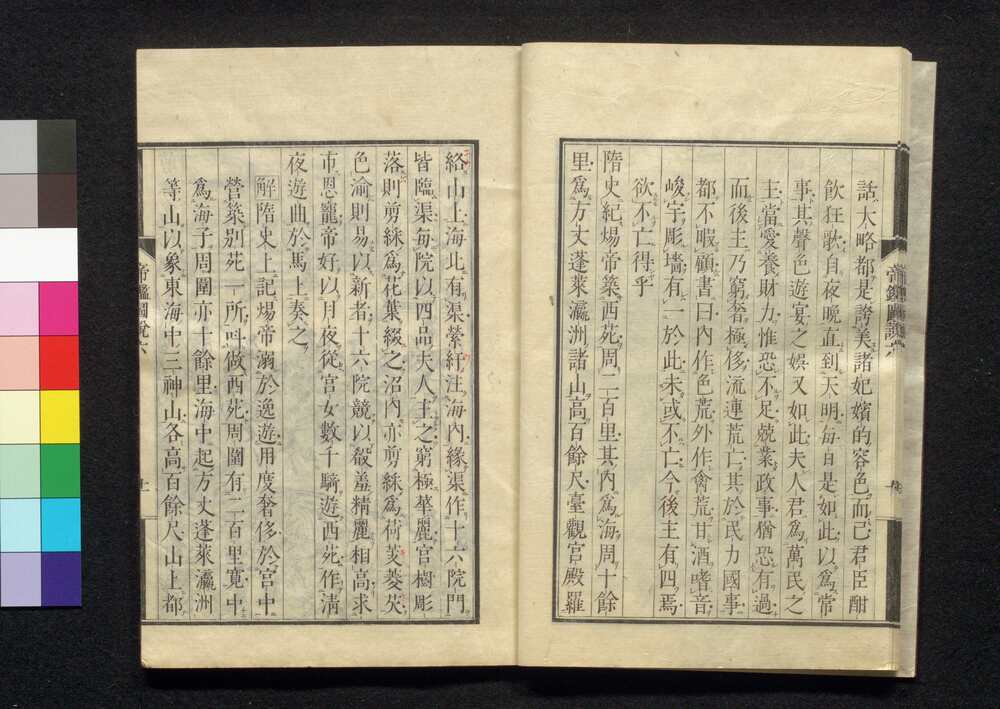 話大略都是誇美諸妃嬪的容色而已君臣酣
飲狂歌自夜晚直到天明每日是如此以爲常
事其聲色遊宴之娛又如此夫人君爲萬民之
主當愛養財力惟恐不足兢業政事猶恐有過
而後主乃窮奢極侈流連荒亡其於民力國事
都不暇顧書曰內作色荒外作禽荒甘酒嗜音
峻宇彫墻有一於此未或不亡今後主有四焉
欲不亡得乎
隋史紀煬帝築西苑周二百里其內爲海周十餘
里爲方丈蓬萊瀛洲諸山高百餘尺臺觀宮殿羅
帝鑑圖說六
絡山上海北有渠縈紆注海內緣渠作十六院門
皆臨渠每院以四品夫人主之窮極華麗宮樹彫
落則剪綵爲花葉綴之沼內亦剪綵爲荷芰菱芡
色渝則易以新者十六院競以殽羞精麗相高求
市恩寵帝好以月夜從宮女數千騎遊西苑作清
夜遊曲於馬上奏之
解隋史上記煬帝溺於逸遊用度奢侈於宮中
營築別苑一所叫做西苑周圍有二百里寬中
爲海子周圍亦十餘里海中起方丈蓬萊瀛洲
等山以象東海中三神山各高百餘尺山上都
帝鑑圖說六
十一